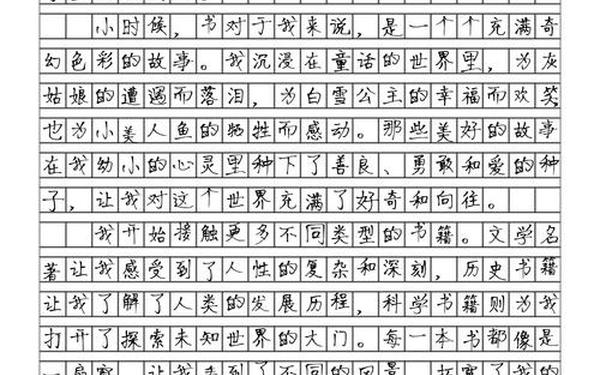 小时候，书对于我来说，是一个个充满奇
幻色彩的故事。我沉浸在童话的世界里，为灰
姑娘的遭遇而落泪，为白雪公主的幸福而欢笑，
也为小美人鱼的牺牲而感动。那些美好的故事
在我幼小的心灵里种下了善良、勇敢和爱的种
子，让我对这个世界充满了好奇和向往。
我开始接触更多不同类型的书籍。文学名
著让我感受到了人性的复杂和深刻，历史书籍
让我了解了人类的发展历程，科学书籍则为我
打开了探索未知世界的大门。每一本书都像是
一扇窗，让我看到了不同的风景，拓宽了我的